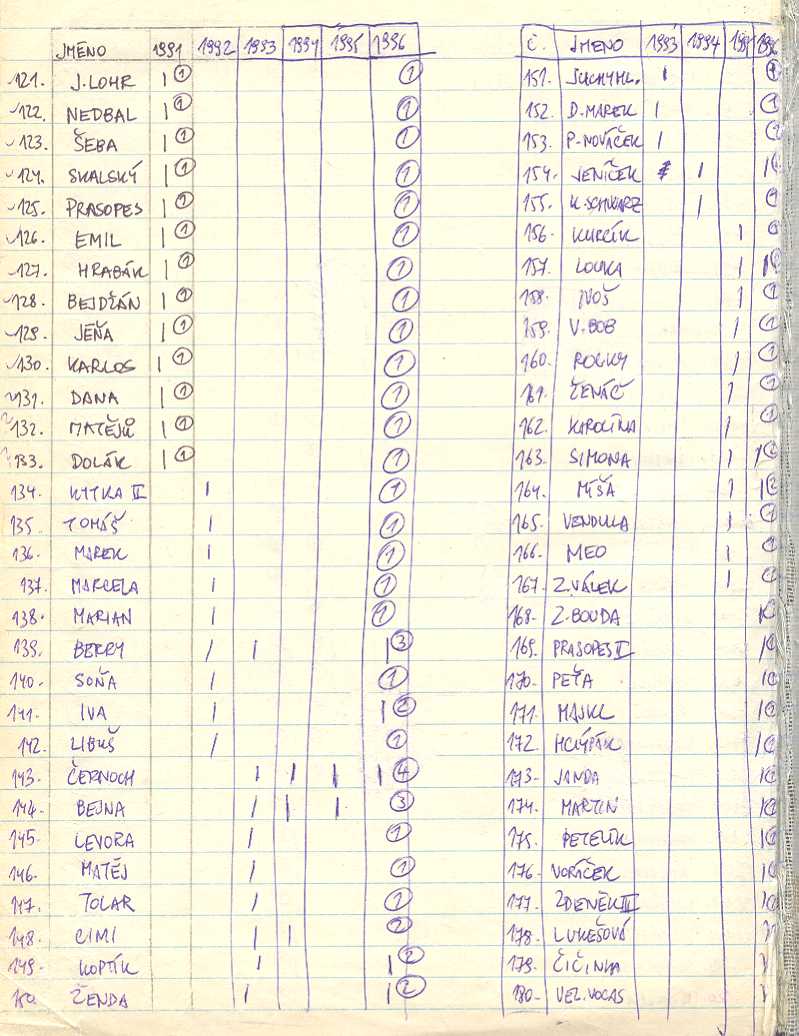 JMÉNO 1991 1992 1993 1994 1995 1996
121. J. LOHR | ① ①
122. NEDBAL | ① ①
123. ŠEBA | ① ①
124. SKALSKÝ | ① ①
125. PRASOPES | ① ①
126. EMIL | ① ①
127. HRABÁK | ① ①
128. BEJDŽÁN | ① ①
129. JÉŇA | ① ①
130. KARLOS | ① ①
131. DANA | ① ①
132. MATĚJŮ | ① ①
133. DOLÁK | ① ①
134. KYTKA II | ①
135. TOMÁŠ | ①
136. MAREK | ①
137. MARCELA | ①
138. MARIAN | ①
139. BERRY | | | ③
140. SOŇA | ①
141. IVA | | ②
142. LIBUŠ | ①
143. ČERNOCH | | | | ④
144. BEJNA | | | ③
145. LEVORA | ①
146. MATĚJ | ①
147. TOLAR | ①
148. CIMI | | ②
149. KOPTÍK | | ②
150. ŽENDA | | ②
Č. JMENO 1993 1994 1995 1996
151. SUCHÝ ML. | ①
152. D. MAREK | ①
153. P. NOVÁČEK | ①
154. JENÍČEK | |
155. K. SCHWARZ | ①
156. KURČÍK |
157. LOUKA | |
158. IVOŠ | ①
159. V. BOB | ①
160. ROCKY | ①
161. ŽENÁČ | ①
162. KAROLÍNA | ①
163. SIMONA | | ②
164. MÍŠA | | ②
165. VENDULA | ①
166. MEO | ①
167. Z. VÁLEK | ①
168. Z. BOUDA |
169. PRASOPES II |
170. PEŤA |
171. MAJKL |
172. |
173. JANDA |
174. MARTIN |
175. PETELÍK |
176. VORÁČEK |
177. ZDENĚK III |
178. LUKEŠOVÁ
179. ČIČINKA
180. VEL. VOCAS